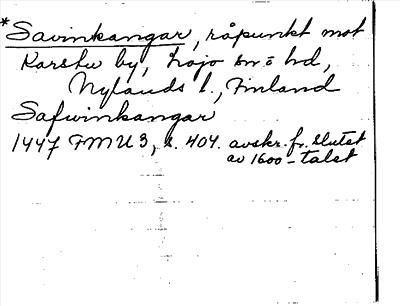 *Savinkangar, råpunkt mot
Karstu by, Lojo sn o hd,
Nylands l., Finland
Safwinkangar
1447 FMU 3, s. 404. avskr. fr. slutet
av 1600-talet